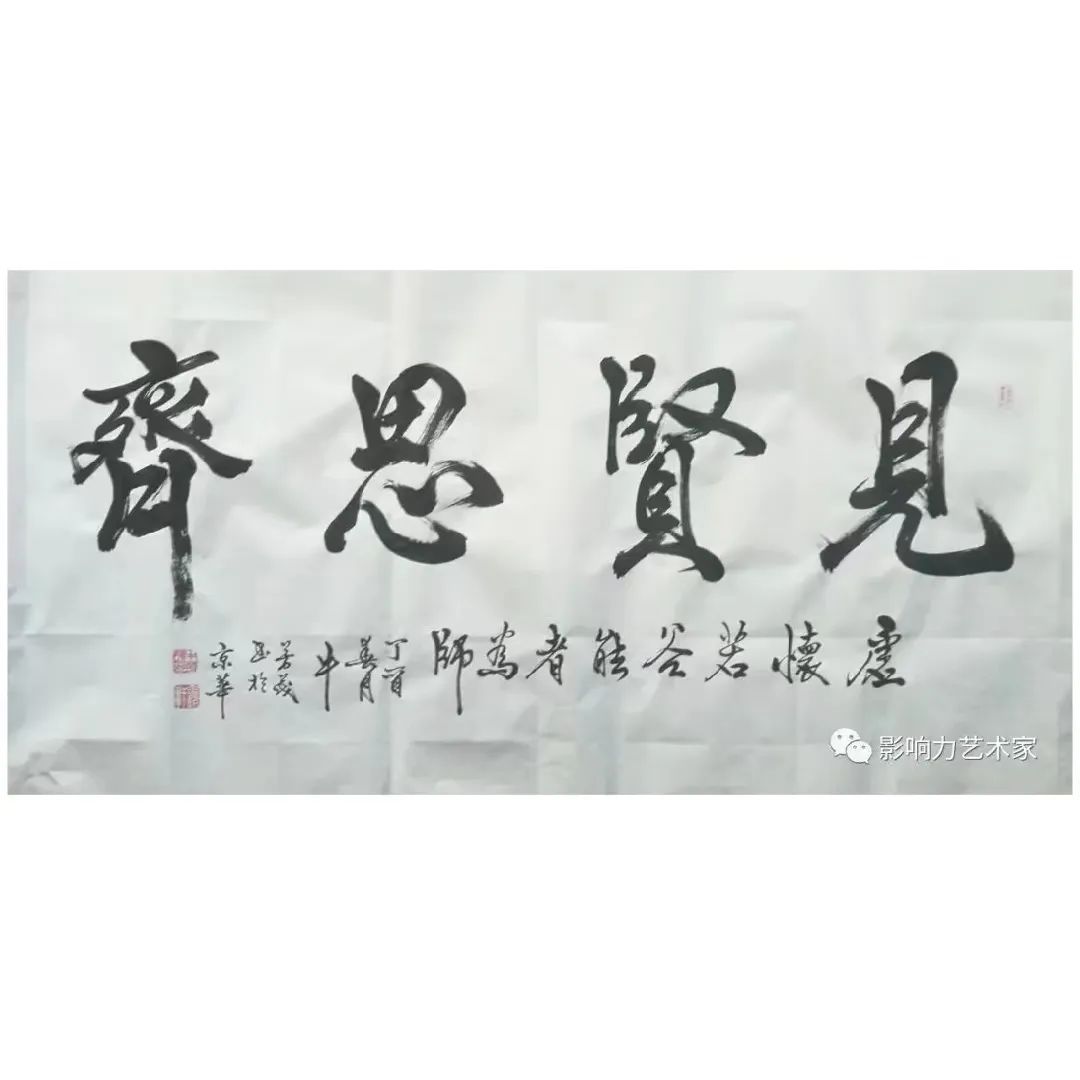 見賢思齊
虛懷若谷能者為師
丁酉
月
牛
於
京華
影响力艺术家